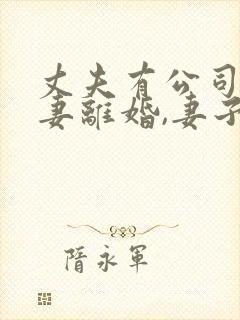 丈夫有公司
妻離婚,妻子
隋永軍